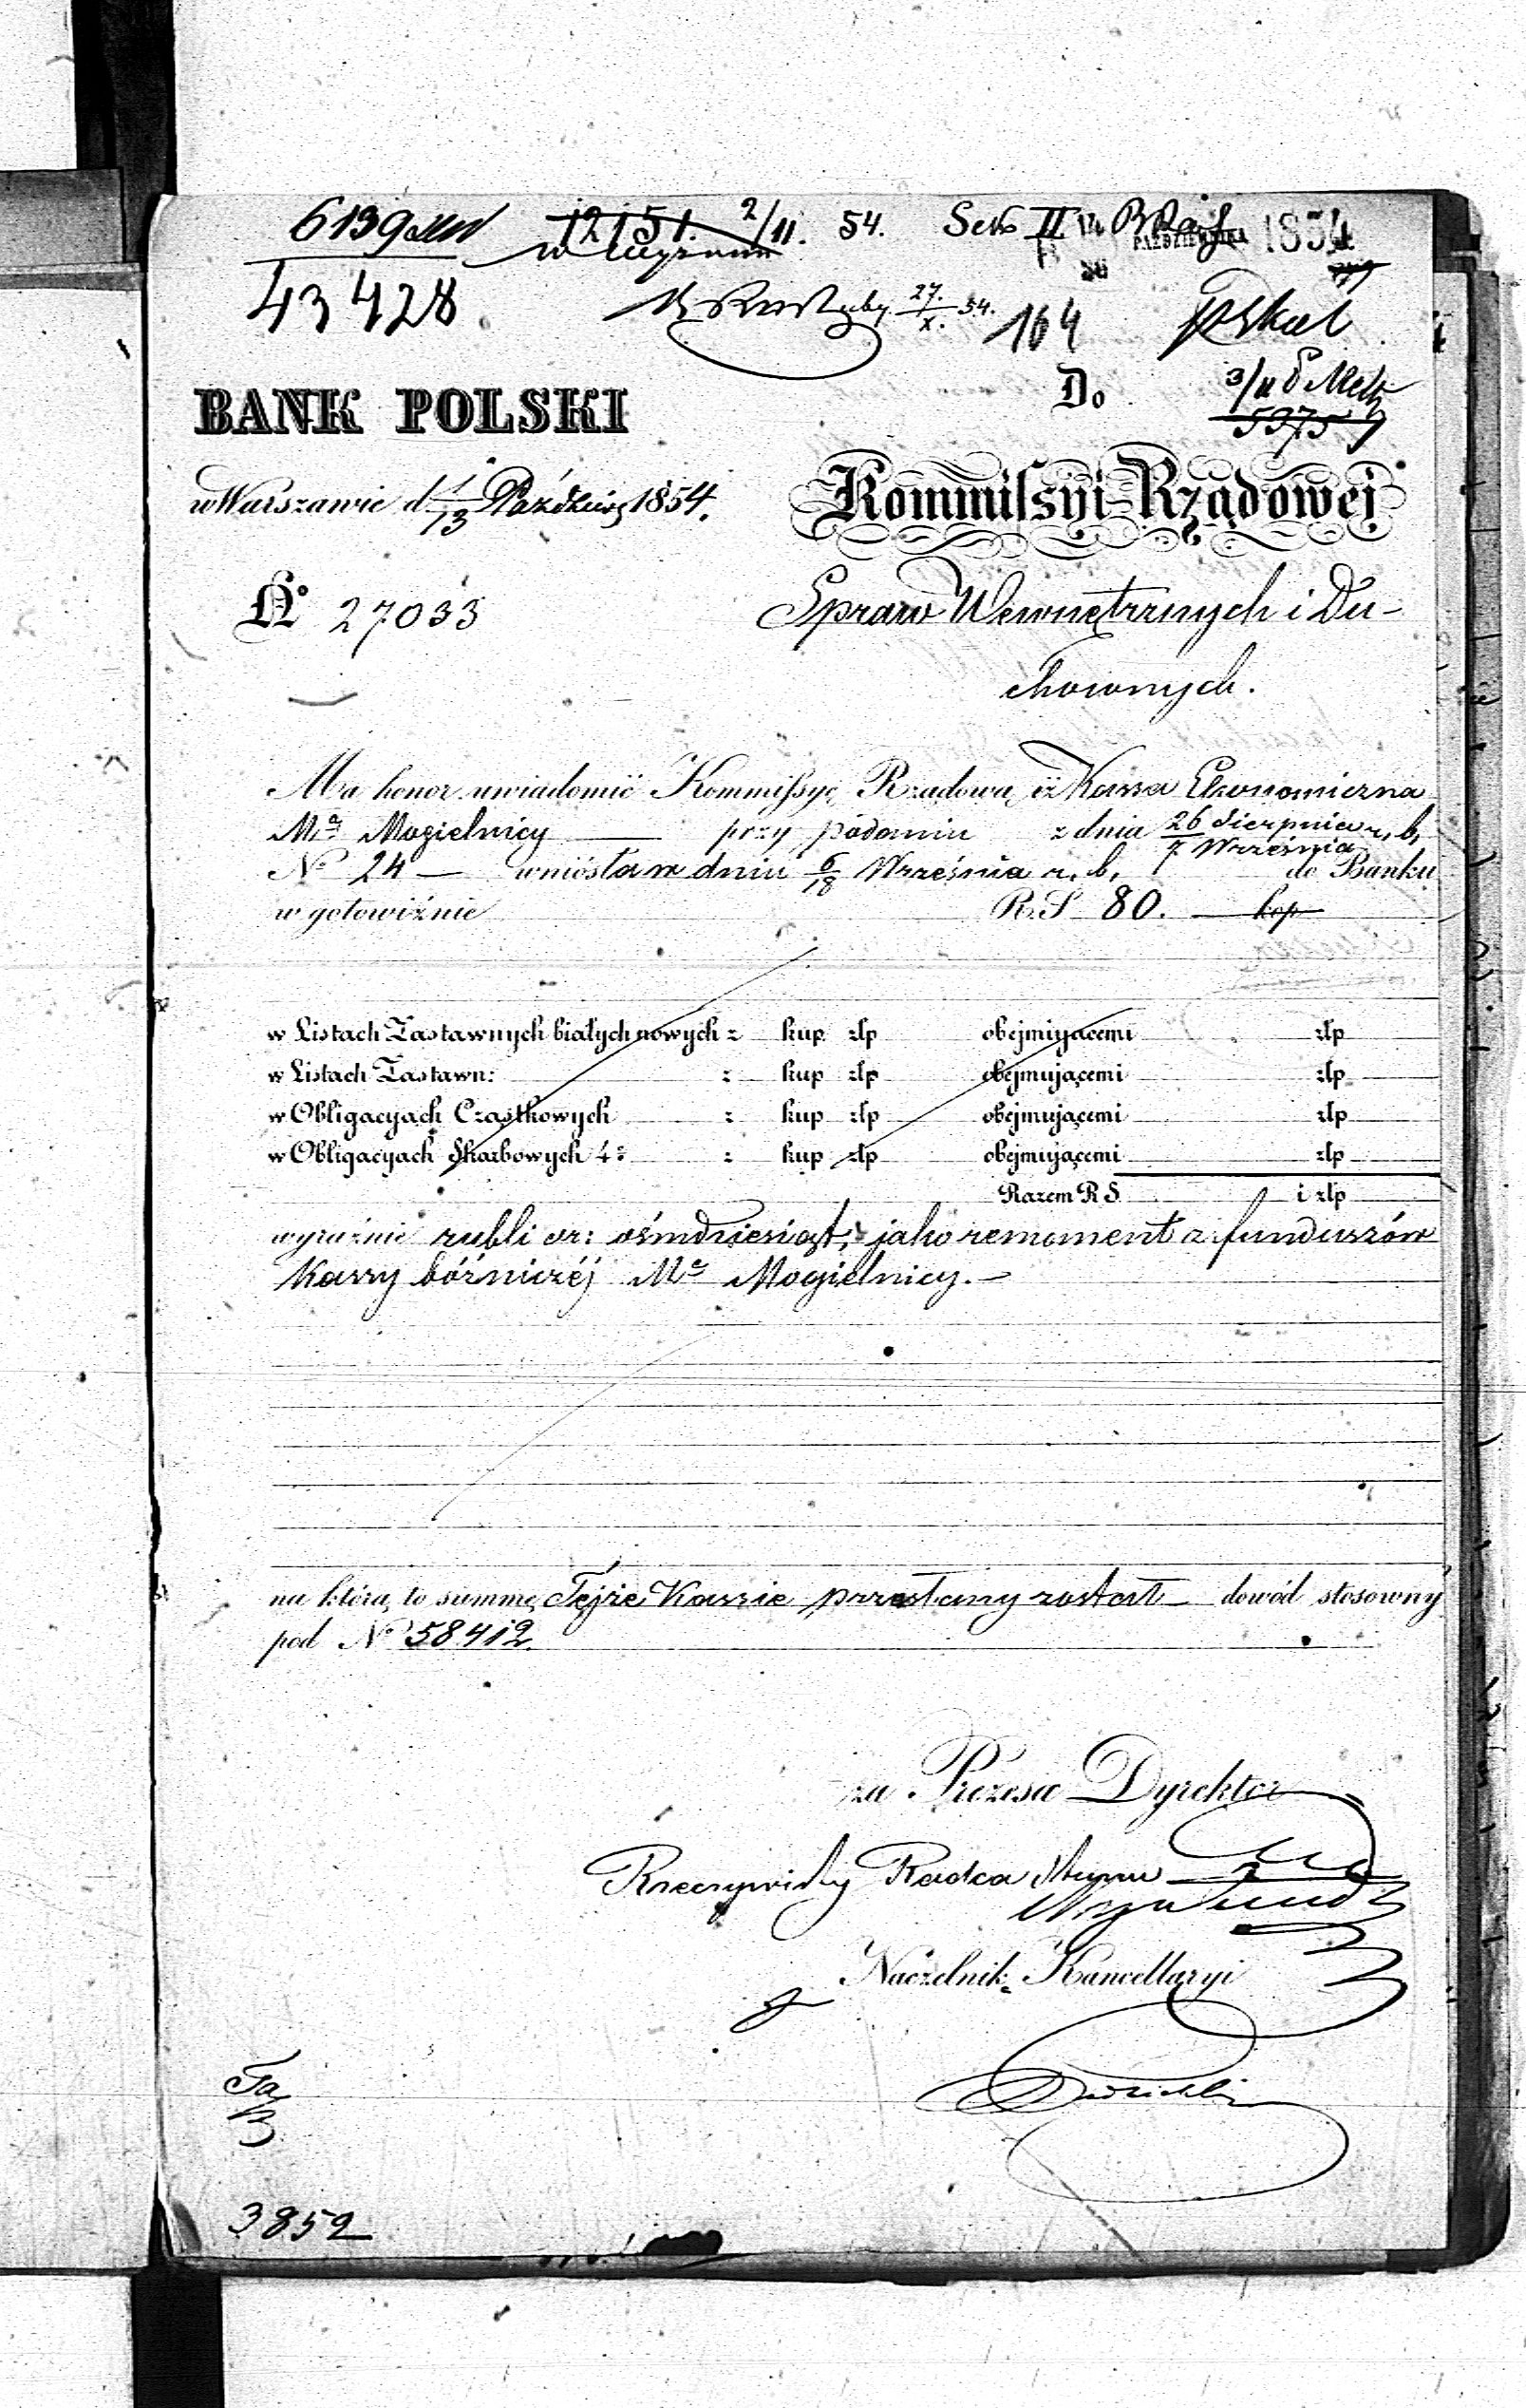 6139
12151. 2/11. 54. Sek II PAŹDZIERNIKA 1854
43428
27/X. 54.
164
BANK POLSKI
Do
3/11
5975
w Warszawie d 1/13 Paździer 1854.
Kommissyi Rządowej
No 27033
Spraw Wewnętrznych i Du-
chownych.
Ma honor uwiadomić Kommissyę Rządową iż Kassa Ekonomiczna
Ma Mogielnicy przy podaniu z dnia 26 Sierpnia / 7 Września r. b.
No 24 — wniósła w dniu 6/18 Września r. b. do Banku
w gotowiźnie R. S 80. — kop
w Listach Zastawnych białych nowych z kup złp obejmującemi złp
w Listach Zastawn: z kup złp obejmującemi złp
w Obligacyach Cząstkowych z kup złp obejmującemi złp
w Obligacyach Skarbowych 4: z kup złp obejmującemi złp
Razem R S i złp
wyraźnie rubli sr: ośmdziesiąt, jako remanent z funduszów
Kassy bóźniczéj Ma Mogielnicy. —
na którą to summę Tejże Kassie przesłany został — dowód stosowny
pod No 58412.
za Prezesa Dyrektor
Rzeczywisty Radca Stanu
Naczelnik Kancellaryi
3852